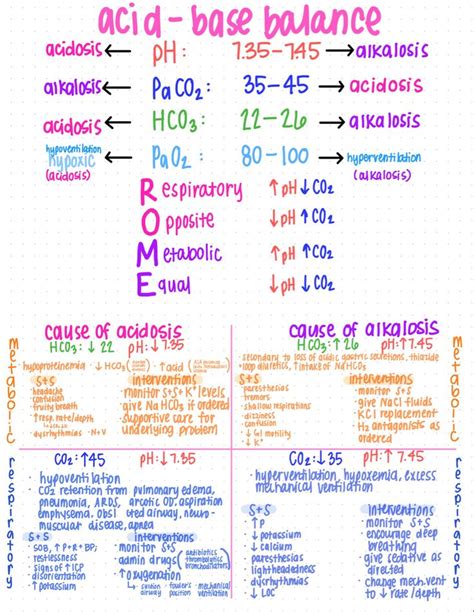 acid-base balance
acidosis ← pH: 7.35-7.45 → alkalosis
alkalosis ← PaCO₂: 35-45 → acidosis
acidosis ← HCO₃: 22-26 → alkalosis
hypoventilation
hypoxic ← PaO₂: 80-100 → hyperventilation
(acidosis) (alkalosis)
Respiratory ↑pH ↓CO₂
Opposite ↓pH ↑CO₂
Metabolic ↑pH ↑CO₂
Equal ↓pH ↓CO₂
cause of acidosis
HCO₃: ↓ 22 pH: ↓ 7.35
metabolic
hypoproteinemia ↓HCO₃ ↑acid
S+S
headache
confusion
fruity breath
↑resp. rate/depth
dysrhythmias · N+V
interventions
monitor S+S + K⁺ levels
give NaHCO₃ if ordered
supportive care for
underlying problem
cause of alkalosis
HCO₃: ↑ 26 pH: ↑ 7.45
secondary to loss of acidic gastric secretions, thiazide
loop diuretics, ↑ intake of NaHCO₃
S+S
paresthesias
tremors
shallow respirations
dizziness
confusion
↓ GI motility
↓ K⁺
interventions
monitor S+S
give NaCl fluids
KCl replacement
H₂ antagonists as
ordered
respiratory
CO₂: ↑45 pH: ↓ 7.35
hypoventilation
CO₂ retention from pulmonary edema,
pneumonia, ARDS, narcotic OD, aspiration
emphysema, obstructed airway, neuro-
muscular disease, apnea
S+S
SOB, ↑P+R+BP;
restlessness
signs of ↑ICP
disorientation
↑ potassium
interventions
monitor S+S
admin drugs (antibiotics
thrombolytics
bronchodilators)
↑ oxygenation
suction · fowler's · mechanical
airway position ventilation
CO₂: ↓35 pH: ↑ 7.45
hyperventilation, hypoxemia, excess
mechanical ventilation
S+S
↑P
↓ potassium
↓ calcium
paresthesias
lightheadedness
dysrhythmias
↓ LOC
interventions
monitor S+S
encourage deep
breathing
give sedative as
directed
change mech. vent
to ↓ rate/depth